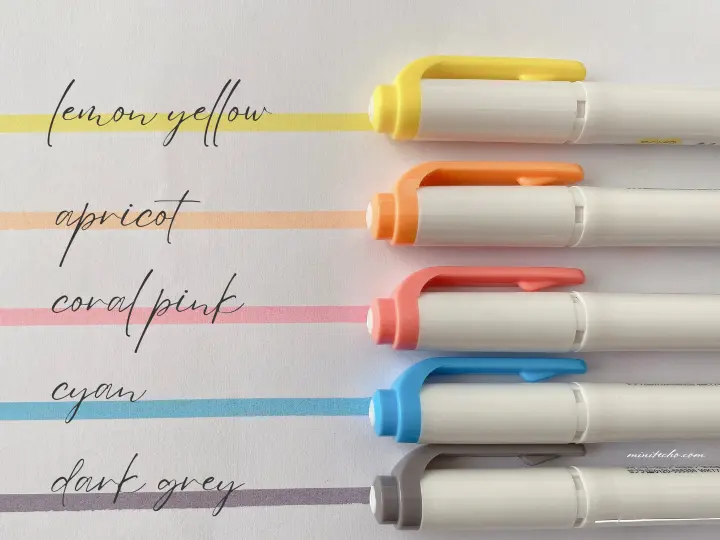 lemon yellow
apricot
coral pink
cyan
dark grey
minitecho.com